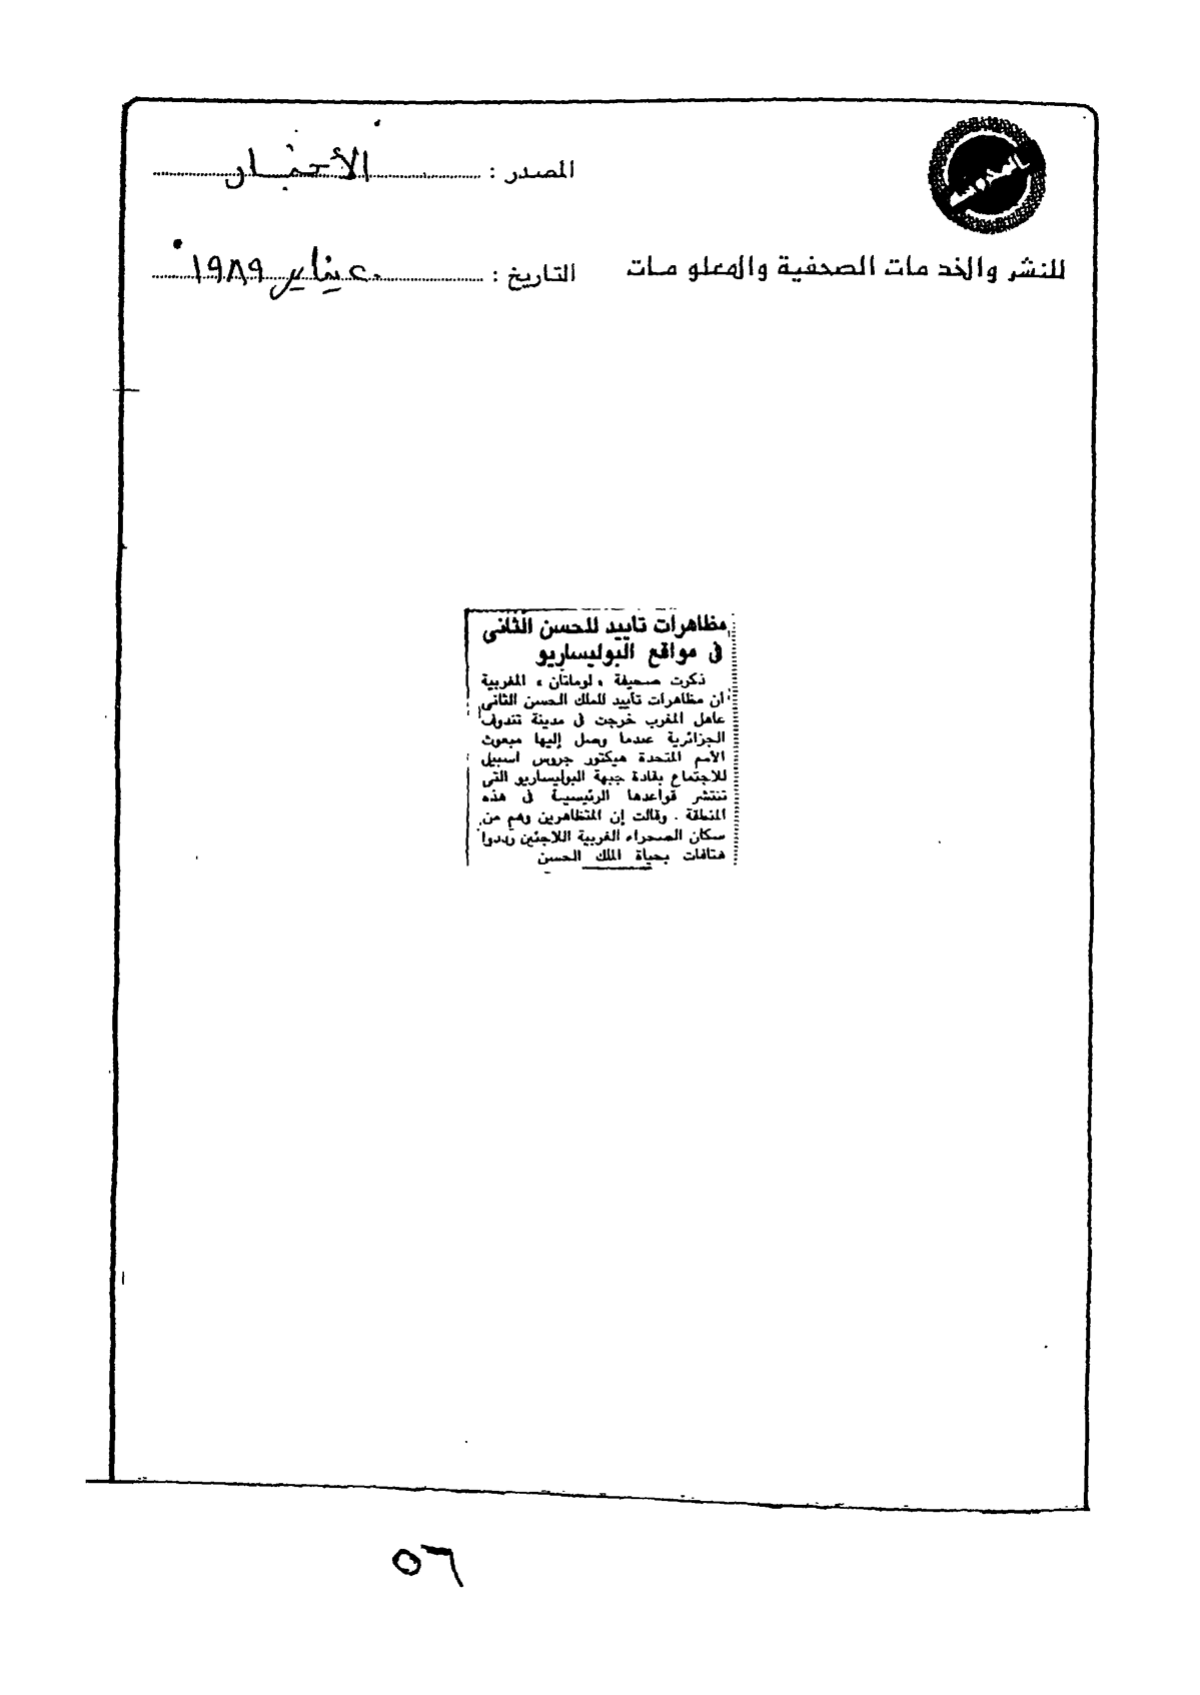 المصدر : الأخبار
للنشر والخدمات الصحفية والمعلومات
التاريخ : ٢٠ يناير ١٩٨٩
مظاهرات تأييد للحسن الثانى
فى مواقع البوليساريو
ذكرت صحيفة « لوماتان » المغربية
أن مظاهرات تأييد للملك الحسن الثانى
عاهل المغرب خرجت فى مدينة تندوف
الجزائرية عندما وصل إليها مبعوث
الأمم المتحدة هيكتور جروس اسبيل
للاجتماع بقادة جبهة البوليساريو التى
تنتشر قواعدها الرئيسية فى هذه
المنطقة . وقالت إن المتظاهرين وهم من
سكان الصحراء الغربية اللاجئين رددوا
هتافات بحياة الملك الحسن
٥٦